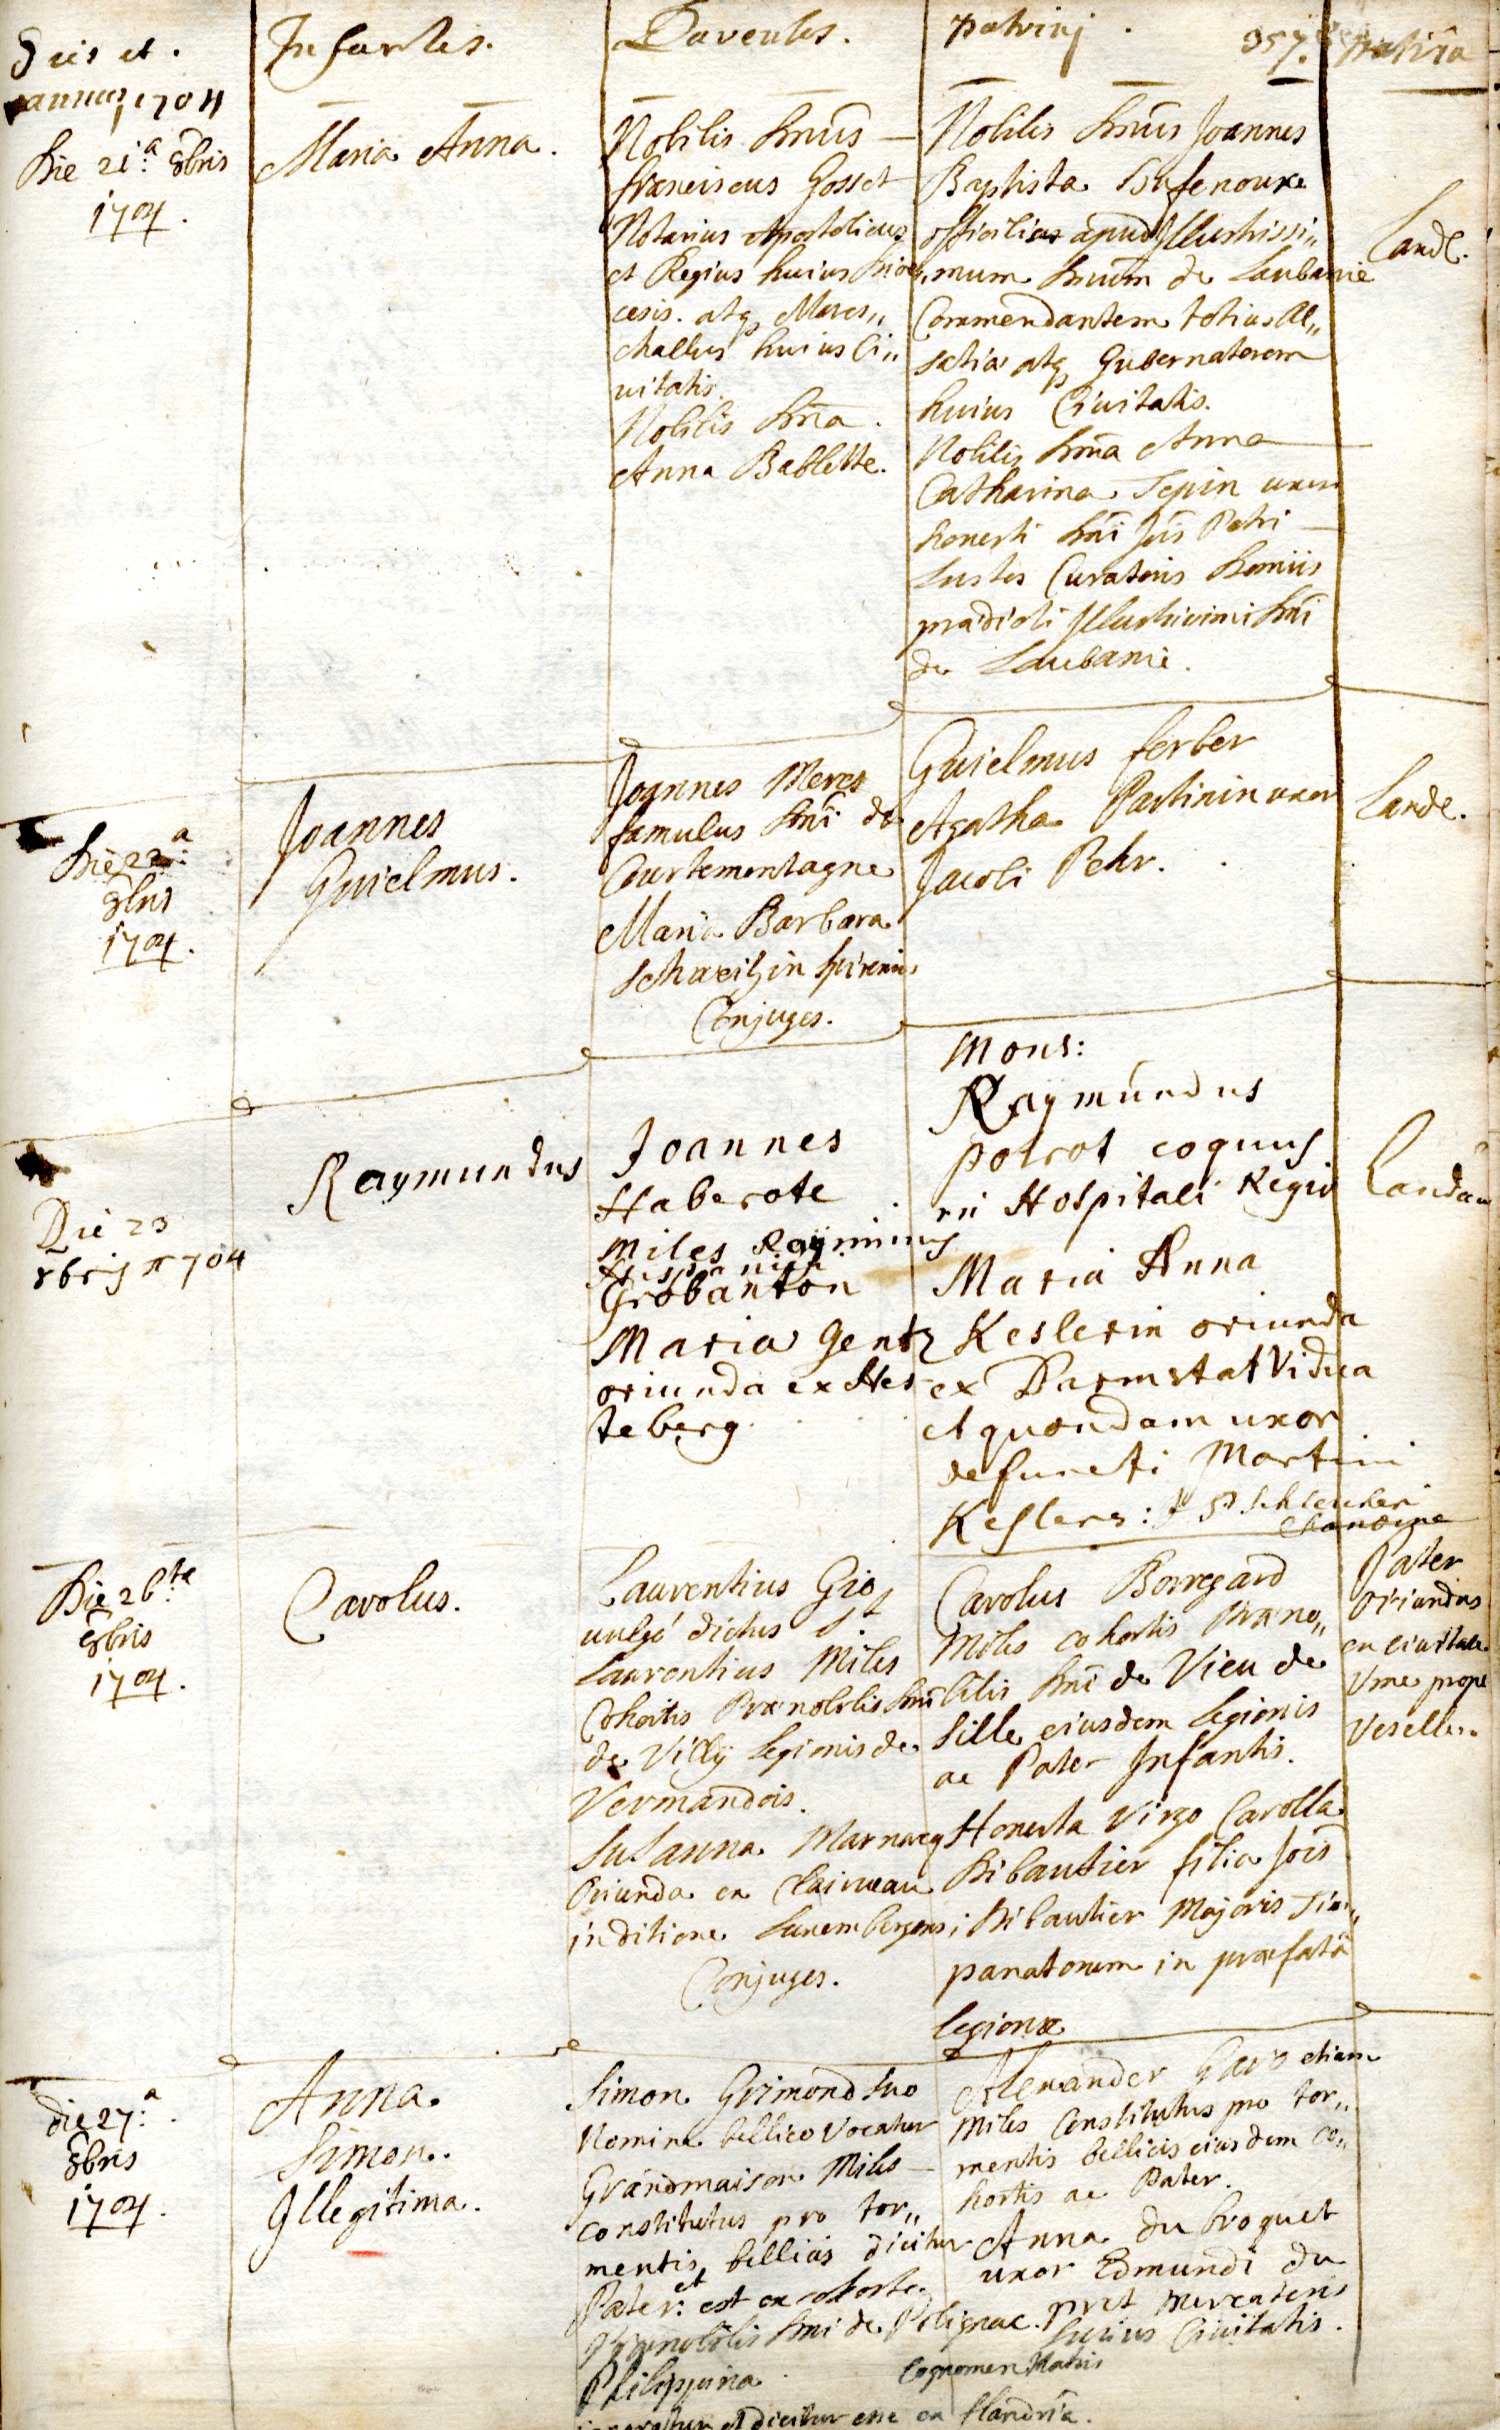 Dies et.
annus 1704
Infantes.
Parentes.
patrini.
357.
patria
Die 21.a 8bris
1704.
Maria Anna.
Nobilis Dnus
franciscus Gosset
Notarius Apostolicus
et Regius huius Dioe,,
cesis. atq Mares,,
challus huius Ci,,
uitatis.
Nobilis Dna.
Anna Bablette.
Nobilis Dnus Joannes
Baptista
officilias apud Illustrissi,,
mum Dnum de Laubanie
Commendantem totius Al,,
satiae atq Gubernatorem
huius Ciuitatis.
Nobilis Dna Anna
Catharina Tepin uxor
honesti Dni Jois Petri
Lustes Curatoris Domus
praedicti Illustrissimi Dni
de Laubanie.
Land.
Die 22.a
8bris
1704.
Joannes
Guielmus.
Joannes Meres
famulus Dni de
Courtemontagne
Maria Barbara
Schweitzin Spirensis
Conjuges.
Guielmus ferber
Agatha Partinin uxor
Jacobi Pehr.
Lande.
Die 23
8bris 1704
Raymundus
Joannes
Haberote
Miles Rayiminis
Hispania
Grobanton
Maria Gentz
oriunda ex Hes
teberg.
Mons:
Raymundus
potrot coquus
in Hospitali Regio
Maria Anna
Keslerin oriunda
ex Darmstat Vidua
et quondam uxor
defuncti Martini
Keslers:
Chanoine
Landau
Die 26.ta
8bris
1704.
Carolus.
Laurentius Gio
uulgò dictus St
Laurentius Miles
Cohortis Praenobilis Dni
de Villÿ legionis de
Vermandois.
Susanna Marnacq
Oriunda ex Clairueau
in ditione Luxembergensi
Conjuges.
Carolus Borregard
Miles cohortis Praeno,,
bilis Dni de Vieu de
Sille eiusdem legionis
ac Pater Infantis.
Honesta Virgo Carolla
Dibautier filia Jois
Dibautier Majoris Tim,,
panatorum in praefatâ
legione
Pater
Oriundus
ex ciuitate
Vme prope
Veselle..
die 27.a
8bris
1704.
Anna.
Simon.
Illegitima.
Simon Grimond suo
Nomine bellico Vocatur
Grandmaison Miles
constitutus pro tor,,
mentis bellicis dicitur
Pater: et est ex cohorte
Praenobilis Dni de Polignac.
Philippina
ignoratur et dicitur esse ex flandria.
Cognomen Matris
Alexander etiam
Miles Constitutus pro tor,,
mentis bellicis eiusdem co,,
hortis ac Pater.
Anna du broquet
uxor Edmundi du
pret mercatoris
huius Ciuitatis.